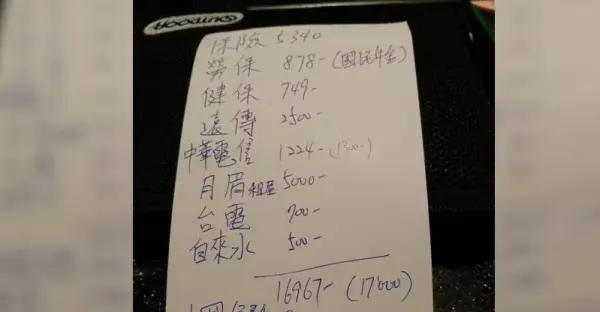 OUTDOOR
保險 5340
勞保 878-(國民年金)
健保 749-
遠傳 2500-
中華電信 1224-(1300-)
月眉租屋 5000-
台電 700-
自來水 500-
16967-(17000)